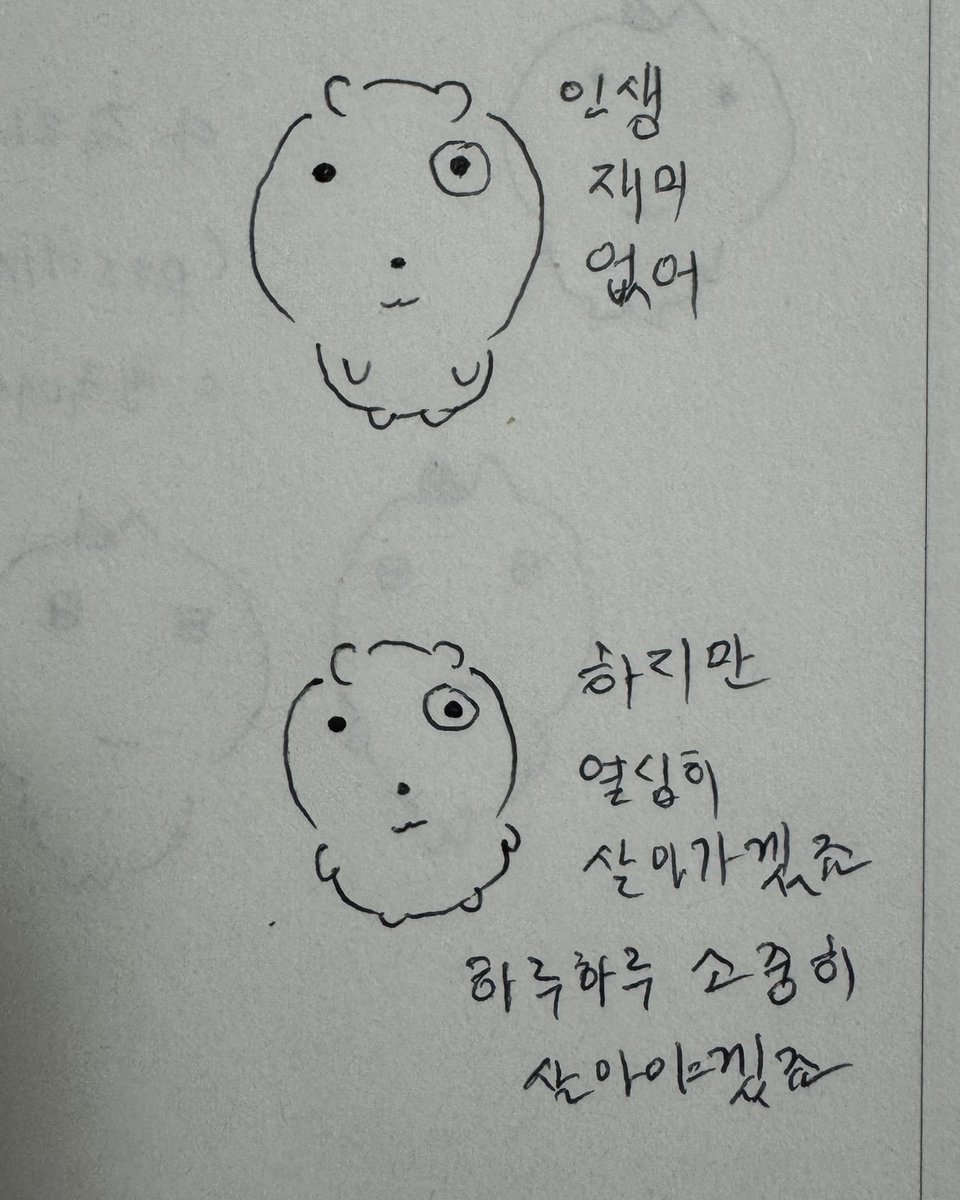 인생
재미
없어
하지만
열심히
살아가겠죠
하루하루 소중히
살아야겠죠